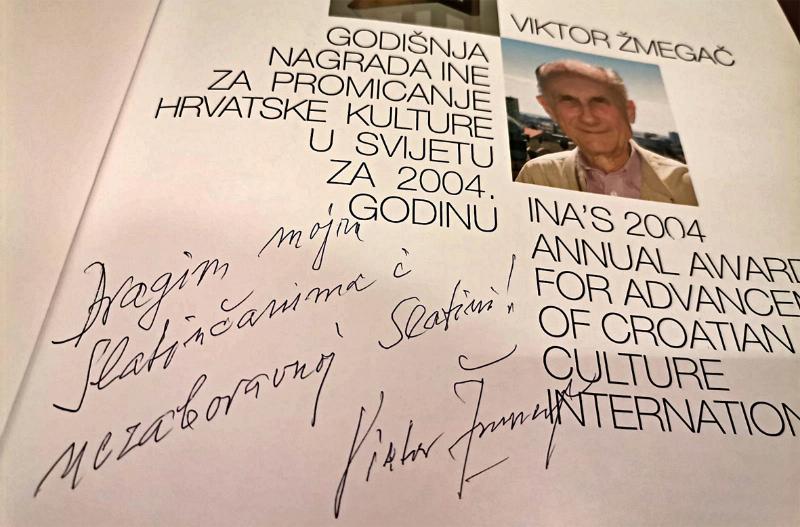 VIKTOR ŽMEGAČ
GODIŠNJA
NAGRADA INE
ZA PROMICANJE
HRVATSKE KULTURE
U SVIJETU
ZA 2004.
GODINU
INA'S 2004
ANNUAL AWARD
FOR ADVANCEM
OF CROATIAN
CULTURE
INTERNATION
Dragim mojim
Slatinčanima i
nezaboravnoj Slatini!
Viktor Žmegač